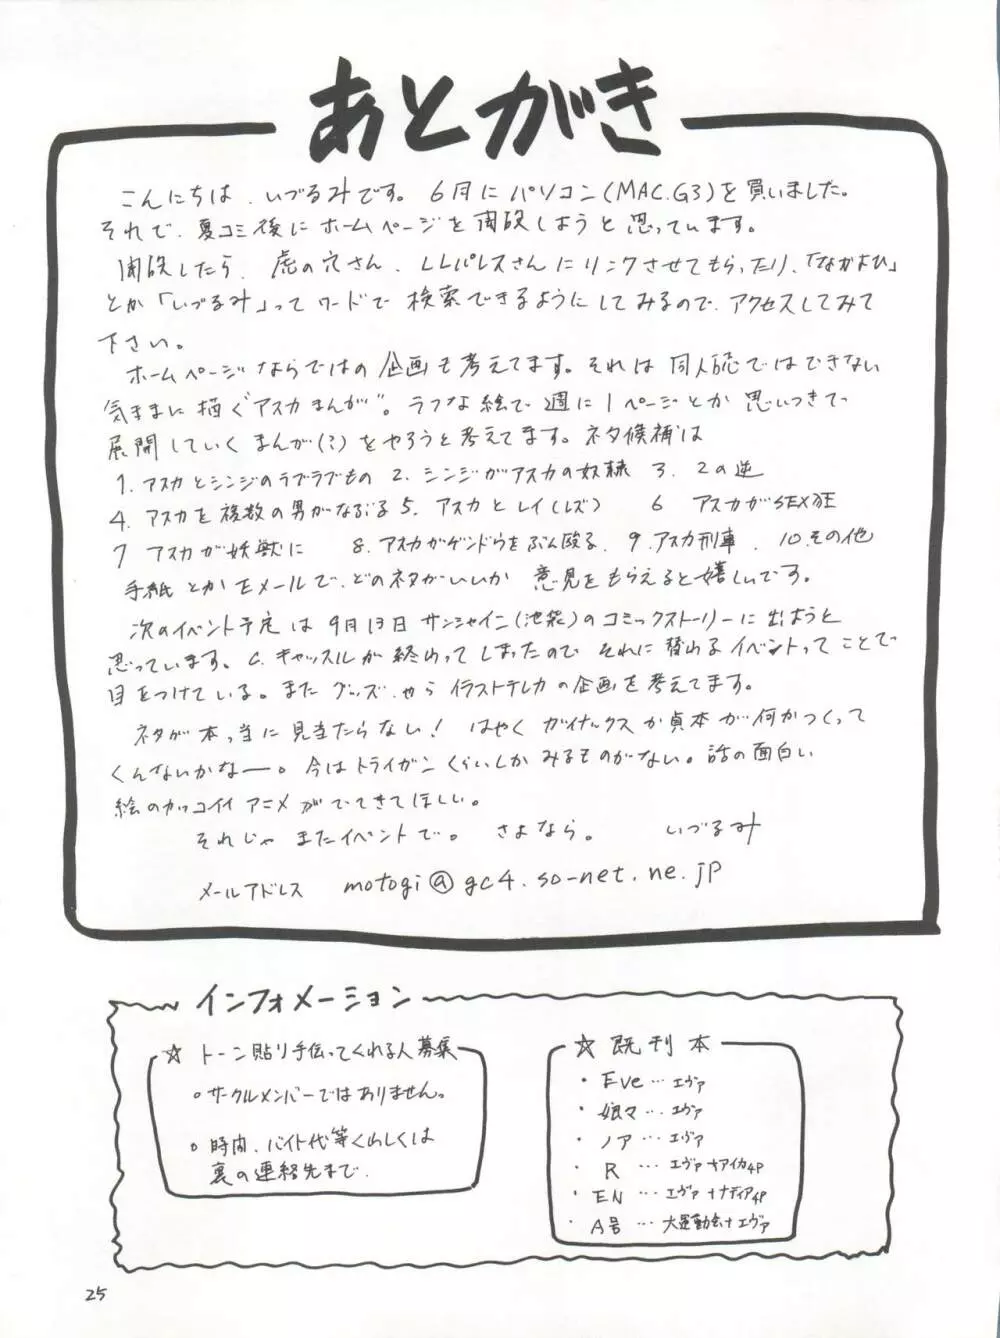 あとがき
こんにちは、いづるみです。6月にパソコン(MAC.G3)を買いました。
それで、夏コミ後にホームページを開設しようと思っています。
開設したら、虎の穴さん、LLパレスさんにリンクさせてもらったり、「なかよひ」
とか「いづるみ」ってワードで検索できるようにしてみるので、アクセスしてみて
下さい。
ホームページならではの企画も考えてます。それは同人誌ではできない
気ままに描く"アスカまんが"。ラフな絵で週に1ページとか思いつきで
展開していくまんが(?)をやろうと考えてます。ネタ候補は
1. アスカとシンジのラブラブもの 2. シンジがアスカの奴隷 3. 2の逆
4. アスカを複数の男がなぶる 5. アスカとレイ(レズ) 6 アスカがSEX狂
7 アスカが妖獣に 8. アスカがゲンドウをぶん殴る 9. アスカ刑事 10. その他
手紙とかEメールで、どのネタがいいか意見をもらえると嬉しいです。
次のイベント予定は9月13日サンシャイン(池袋)のコミックストーリーに出ようと
思っています。C.キャッスルが終わってしまったので、それに替わるイベントってことで
目をつけている。またグッズやらイラストテレカの企画を考えてます。
ネタが本っ当に見当たらない! はやくガイナックスか貞本が何かつくって
くんないかなー。今はトライガンくらいしかみるものがない。話の面白い
絵のカッコイイアニメがでてきてほしい。
それじゃまたイベントで。さよなら。 いづるみ
メールアドレス motogi@gc4.so-net.ne.jp
インフォメーション
☆ トーン貼り手伝ってくれる人募集
○サークルメンバーではありません。
○時間、バイト代等くわしくは
裏の連絡先まで。
☆ 既刊本
・Eve…エヴァ
・娘々…エヴァ
・ノア…エヴァ
・R…エヴァ+アイカ4P
・EN…エヴァ+ナディア4P
・A号…大運動会+エヴァ
25